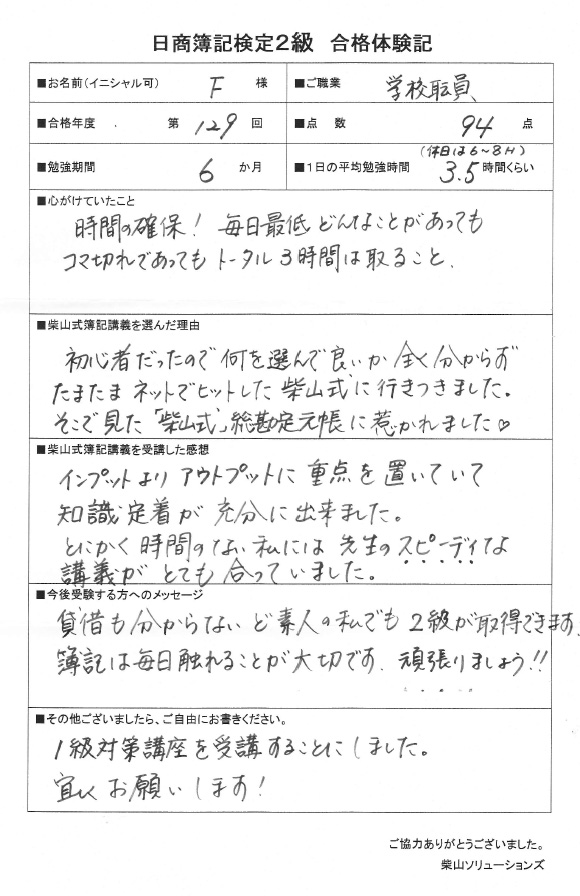 日商簿記検定2級 合格体験記
■お名前(イニシャル可) F 様 ■ご職業 学校職員
■合格年度 . 第 129 回 ■点数 94 点
■勉強期間 6 か月 ■1日の平均勉強時間 (休日は6~8H) 3.5 時間くらい
■心がけていたこと
時間の確保! 毎日最低どんなことがあっても
コマ切れであってもトータル3時間は取ること、
■柴山式簿記講義を選んだ理由
初心者だったので何を選んで良いか全く分からず
たまたまネットでヒットした柴山式に行きつきました。
そこで見た「柴山式」総勘定元帳に惹かれました♡
■柴山式簿記講義を受講した感想
インプットよりアウトプットに重点を置いていて
知識定着が充分に出来ました。
とにかく時間のない私には先生のスピーディな
講義がとても合っていました。
■今後受験する方へのメッセージ
貸借も分からないど素人の私でも2級が取得できます、
簿記は毎日触れることが大切です、頑張りましょう!!
■その他ございましたら、ご自由にお書きください。
1級対策講座を受講することにしました。
宜しくお願いします!
ご協力ありがとうございました。
柴山ソリューションズ